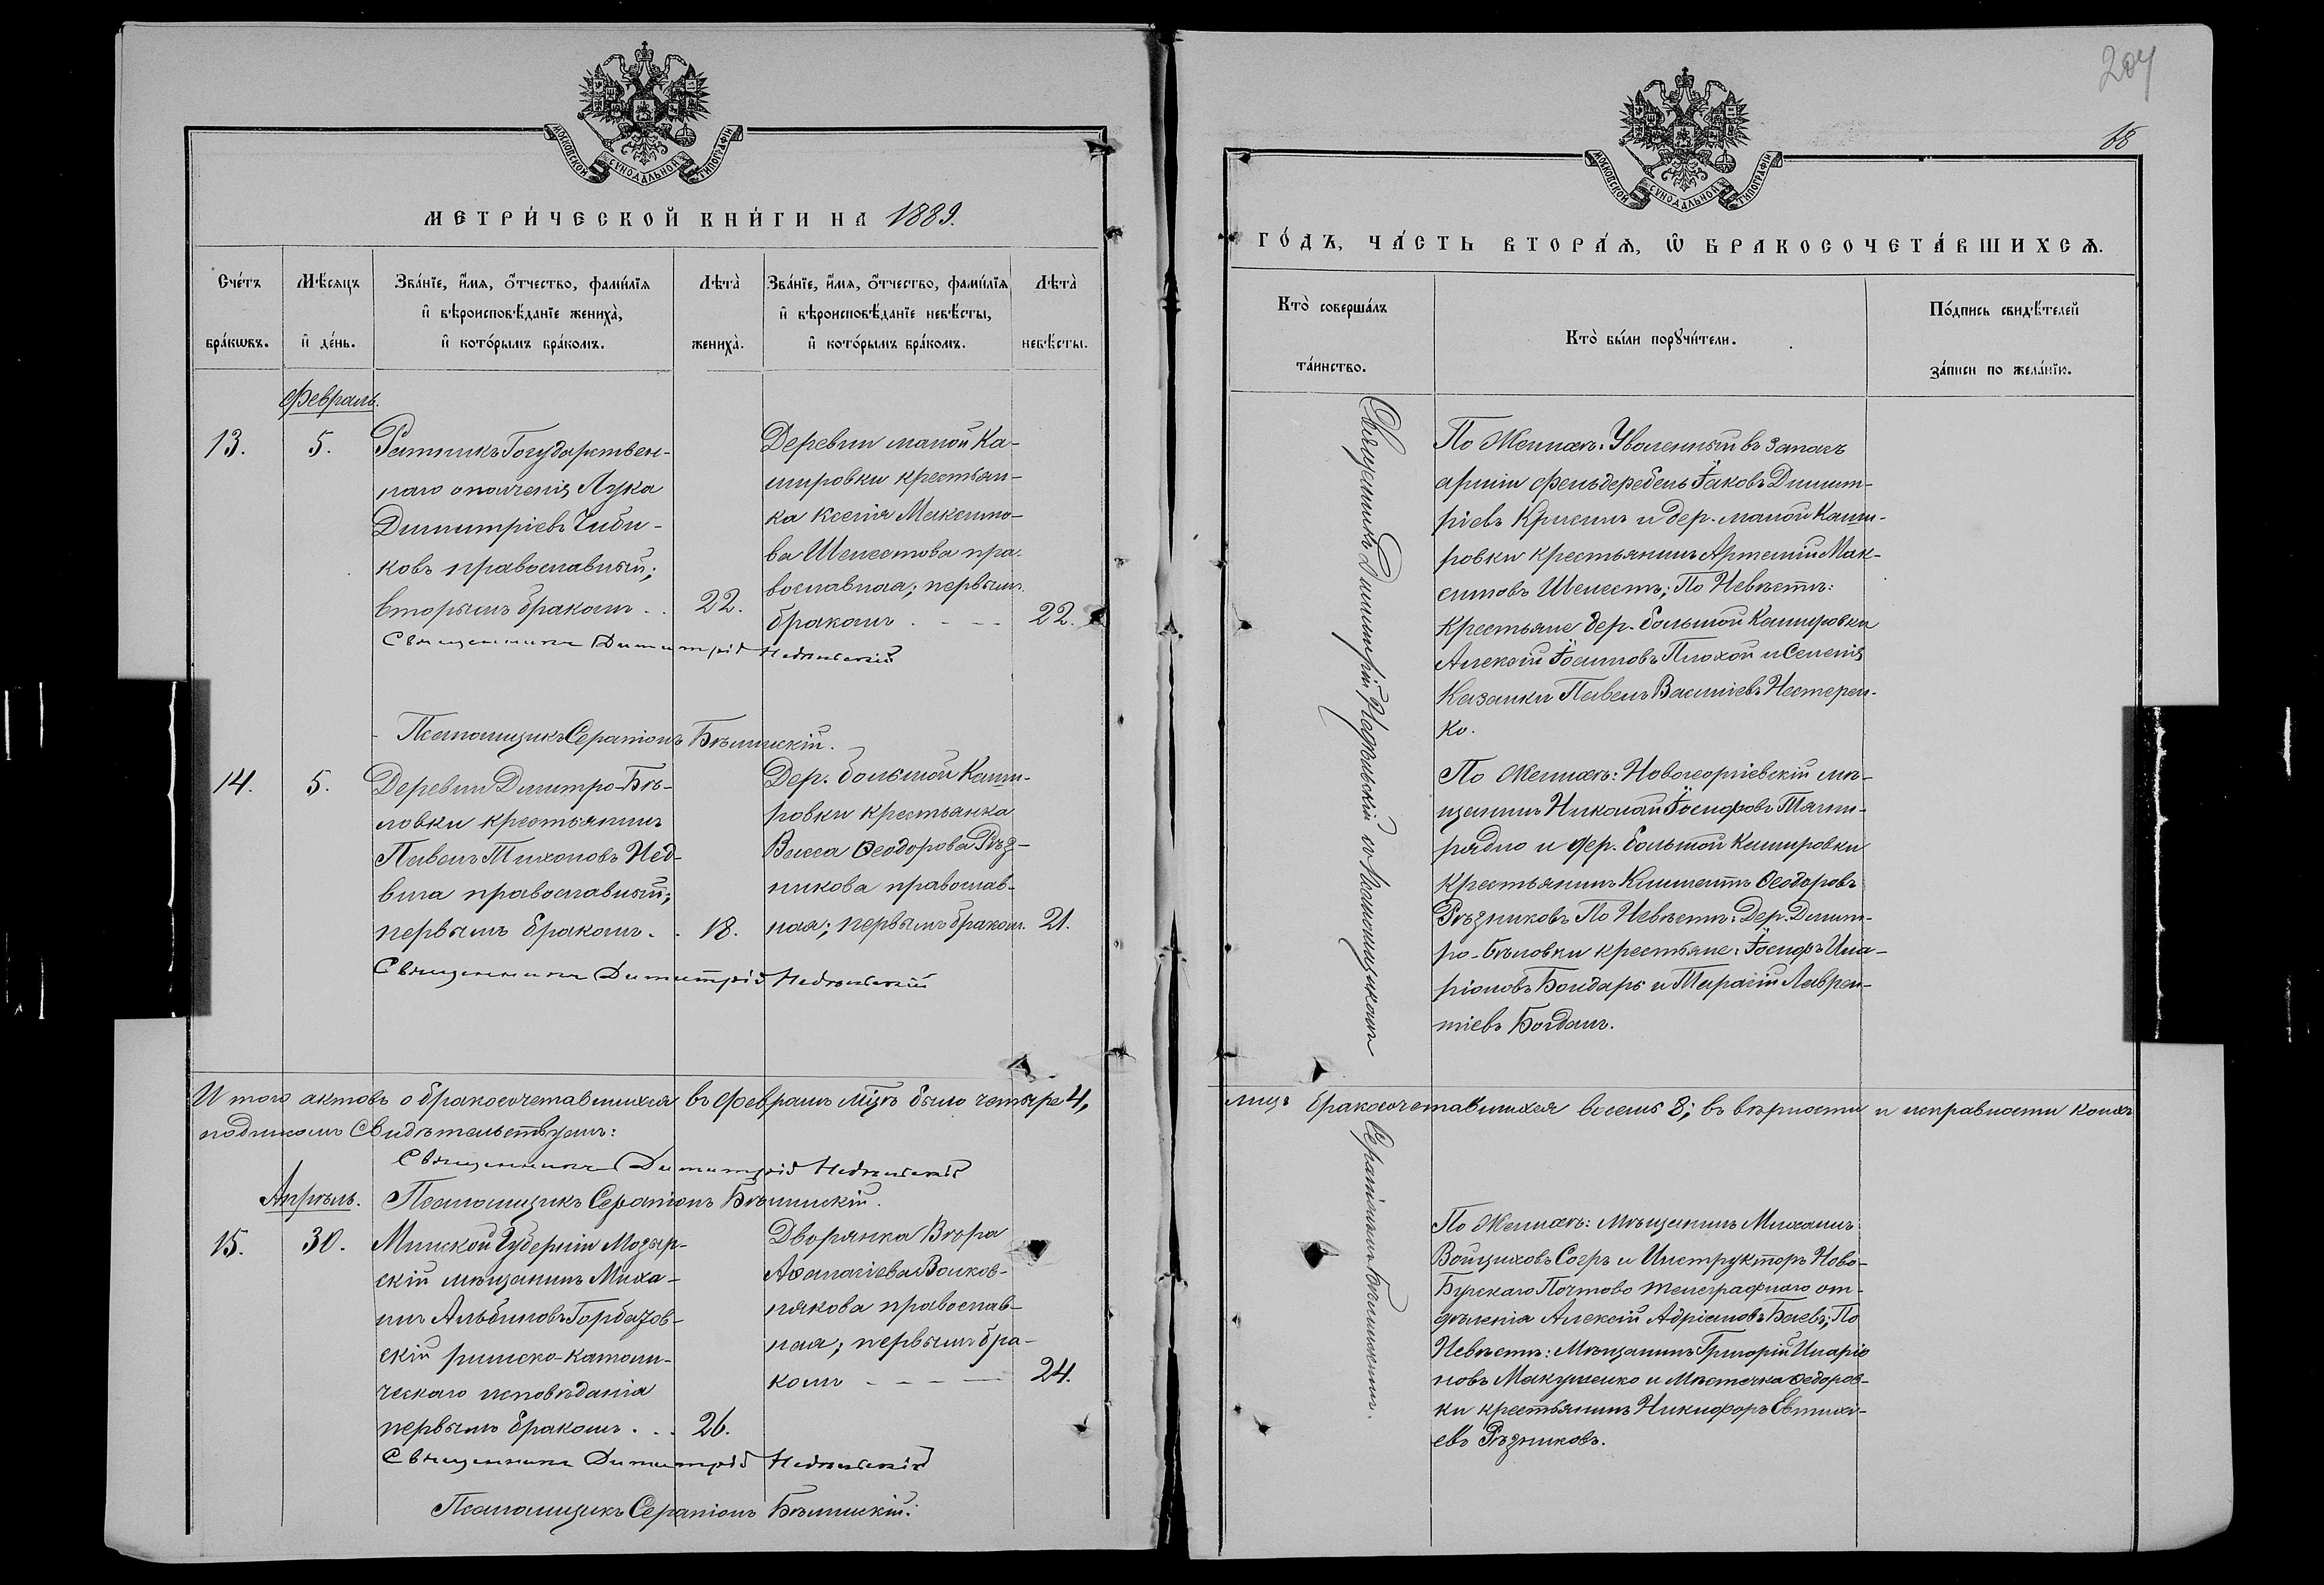 МОСКОВСКОЙ СУНОДАЛЬНОЙ ТИПОГРАФІИ
МЕТРИ́ЧЕСКОЙ КНИ́ГИ НА 1889.
Сче́тъ бра́кѡвъ.
Мѣ́сяцъ и҆ де́нь.
Зва́нїе, и҆́мѧ, ѻ҆́тчество, фами́лїѧ
и҆ вѣроисповѣ́данїе жениха̀,
и҆ кото́рымъ бра́комъ.
Лѣта̀ жениха̀.
Зва́нїе, и҆́мѧ, ѻ҆́тчество, фами́лїѧ
и҆ вѣроисповѣ́данїе невѣ́сты,
и҆ кото́рымъ бра́комъ.
Лѣта̀ невѣ́сты.
Февраль.
13.
5.
Ратникъ Государствен-
наго ополченія Лука
Димитріевъ Чиби-
ковъ православный;
вторымъ бракомъ . . 22.
Деревни малой Ка-
шировки крестьян-
ка Ксенія Максимо-
ва Шелестова пра-
вославная; первымъ
бракомъ . - - - 22.
Священникъ Димитрій Недѣльскій
Псаломщикъ Серапіонъ Бѣлинскій.
14.
5.
Деревни Димитро-Бѣ-
ловки крестьянинъ
Павелъ Тихоновъ Нед-
вига православный;
первымъ бракомъ . . 18.
Дер. большой Каши-
ровки крестьянка
Васса Ѳеодорова Рѣз-
никова православ-
ная; первымъ бракомъ. 21.
Священникъ Димитрій Недѣльскій
Итого актовъ о бракосочетавшихся въ февралѣ мцѣ было четыре 4,
подписомъ свидѣтельствуемъ:
Священникъ Димитрій Недѣльскій
Апрѣль.
Псаломщикъ Серапіонъ Бѣлинскій.
15.
30.
Минской Губерніи Мозыр-
скій мѣщанинъ Миха-
илъ Альбиновъ Горбачов-
скій римско-католи-
ческаго исповѣданія
первымъ бракомъ . . . 26.
Дворянка Вѣра
Аѳанасіева Волков-
някова православ-
ная; первымъ бра-
комъ - - - - 24.
Священникъ Димитрій Недѣльскій
Псаломщикъ Серапіонъ Бѣлинскій.
204
18
МОСКОВСКОЙ СУНОДАЛЬНОЙ ТИПОГРАФІИ
ГО́ДЪ, ЧА́СТЬ ВТОРА́Ѧ, Ѽ БРАКОСОЧЕТА́ВШИХСѦ.
Кто̀ соверша́лъ
та́инство.
Кто̀ бы́ли порꙋчи́тели.
По́дпись свидѣ́телей
за́писи по жела́нїю.
Священникъ Димитрій Недѣльскій съ Псаломщикомъ
Серапіономъ Бѣлинскимъ.
По Женихѣ: Уволенный въ запасъ
арміи фельдфебель Іаковъ Димит-
ріевъ и дер. малой Каши-
ровки крестьянинъ Артемій Мак-
симовъ Шелестъ; По Невѣстѣ:
Крестьяне дер. большой Кашировки
Алексій Іосиповъ Плохой и Селенія
Казанки Павелъ Василіевъ Нестерен-
ко.
По Женихѣ: Новогеоргіевскій мѣ-
щанинъ Николай Іосифовъ Тягни-
рядно и дер. большой Кашировки
крестьянинъ Климентъ Ѳеодоровъ
Рѣзниковъ По Невѣстѣ: Дер. Димит-
ро-Бѣловки крестьяне: Іосифъ Ила-
ріоновъ Бондарь и Тарасій Лаврен-
тіевъ Богданъ.
лицъ бракосочетавшихся восемь 8; въ вѣрности и исправности коихъ
По Женихѣ: Мѣщанинъ Михаилъ
Войциховъ и Инструкторъ Ново-
Бугскаго Почтово телеграфнаго от-
дѣленія Алексій Адріановъ Баевъ; По
Невѣстѣ: Мѣщанинъ Григорій Иларіо
новъ Макушенко и Мѣстечка Ѳедоров-
ки крестьянинъ Никифоръ Евтихі-
евъ Рѣзниковъ.